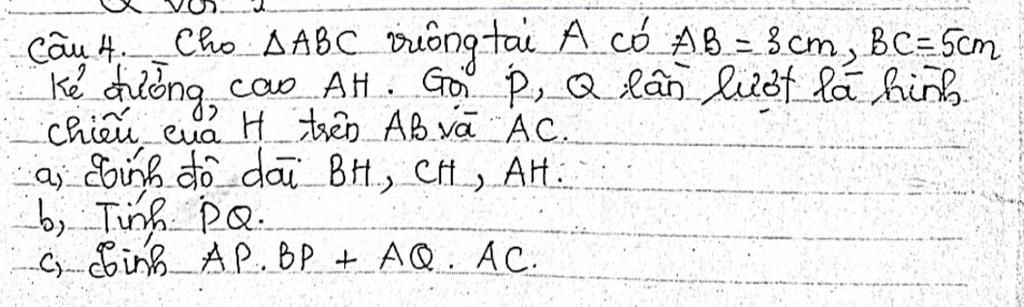 Câu 4. Cho ΔABC vuông tại A có AB = 3cm, BC = 5cm
Kẻ đường cao AH. Gọi P, Q lần lượt là hình
chiếu của H trên AB và AC.
a, Tính độ dài BH, CH, AH.
b, Tính PQ.
c, Tính AP. BP + AQ. AC.